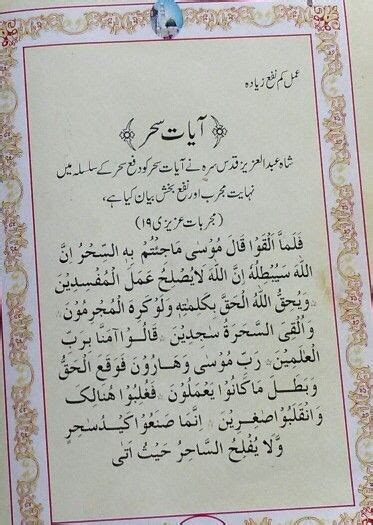 عمل کم نفع زیادہ
﴿ آیات سحر ﴾
شاہ عبدالعزیز قدس سرہ نے آیات سحر کو دفع سحر کے سلسلہ میں
نہایت مجرب اور نفع بخش بیان کیا ہے،
(مجربات عزیزی ۱۹)
فَلَمَّا اَلْقَوْا قَالَ مُوْسٰى مَاجِئْتُمْ بِهِ السِّحْرُ اِنَّ
اللّٰهَ سَيُبْطِلُهٗ اِنَّ اللّٰهَ لَايُصْلِحُ عَمَلَ الْمُفْسِدِيْنَ
وَيُحِقُّ اللّٰهُ الْحَقَّ بِكَلِمٰتِهٖ وَلَوْكَرِهَ الْمُجْرِمُوْنَ
وَاُلْقِىَ السَّحَرَةُ سٰجِدِيْنَ قَالُوْا اٰمَنَّا بِرَبِّ
الْعٰلَمِيْنَ رَبِّ مُوْسٰى وَهَارُوْنَ فَوَقَعَ الْحَقُّ
وَبَطَلَ مَاكَانُوْا يَعْمَلُوْنَ فَغُلِبُوْا هُنَالِكَ
وَانْقَلَبُوْا صٰغِرِيْنَ اِنَّمَا صَنَعُوْا كَيْدُ سٰحِرٍ
وَّلَا يُفْلِحُ السَّاحِرُ حَيْثُ اَتٰى